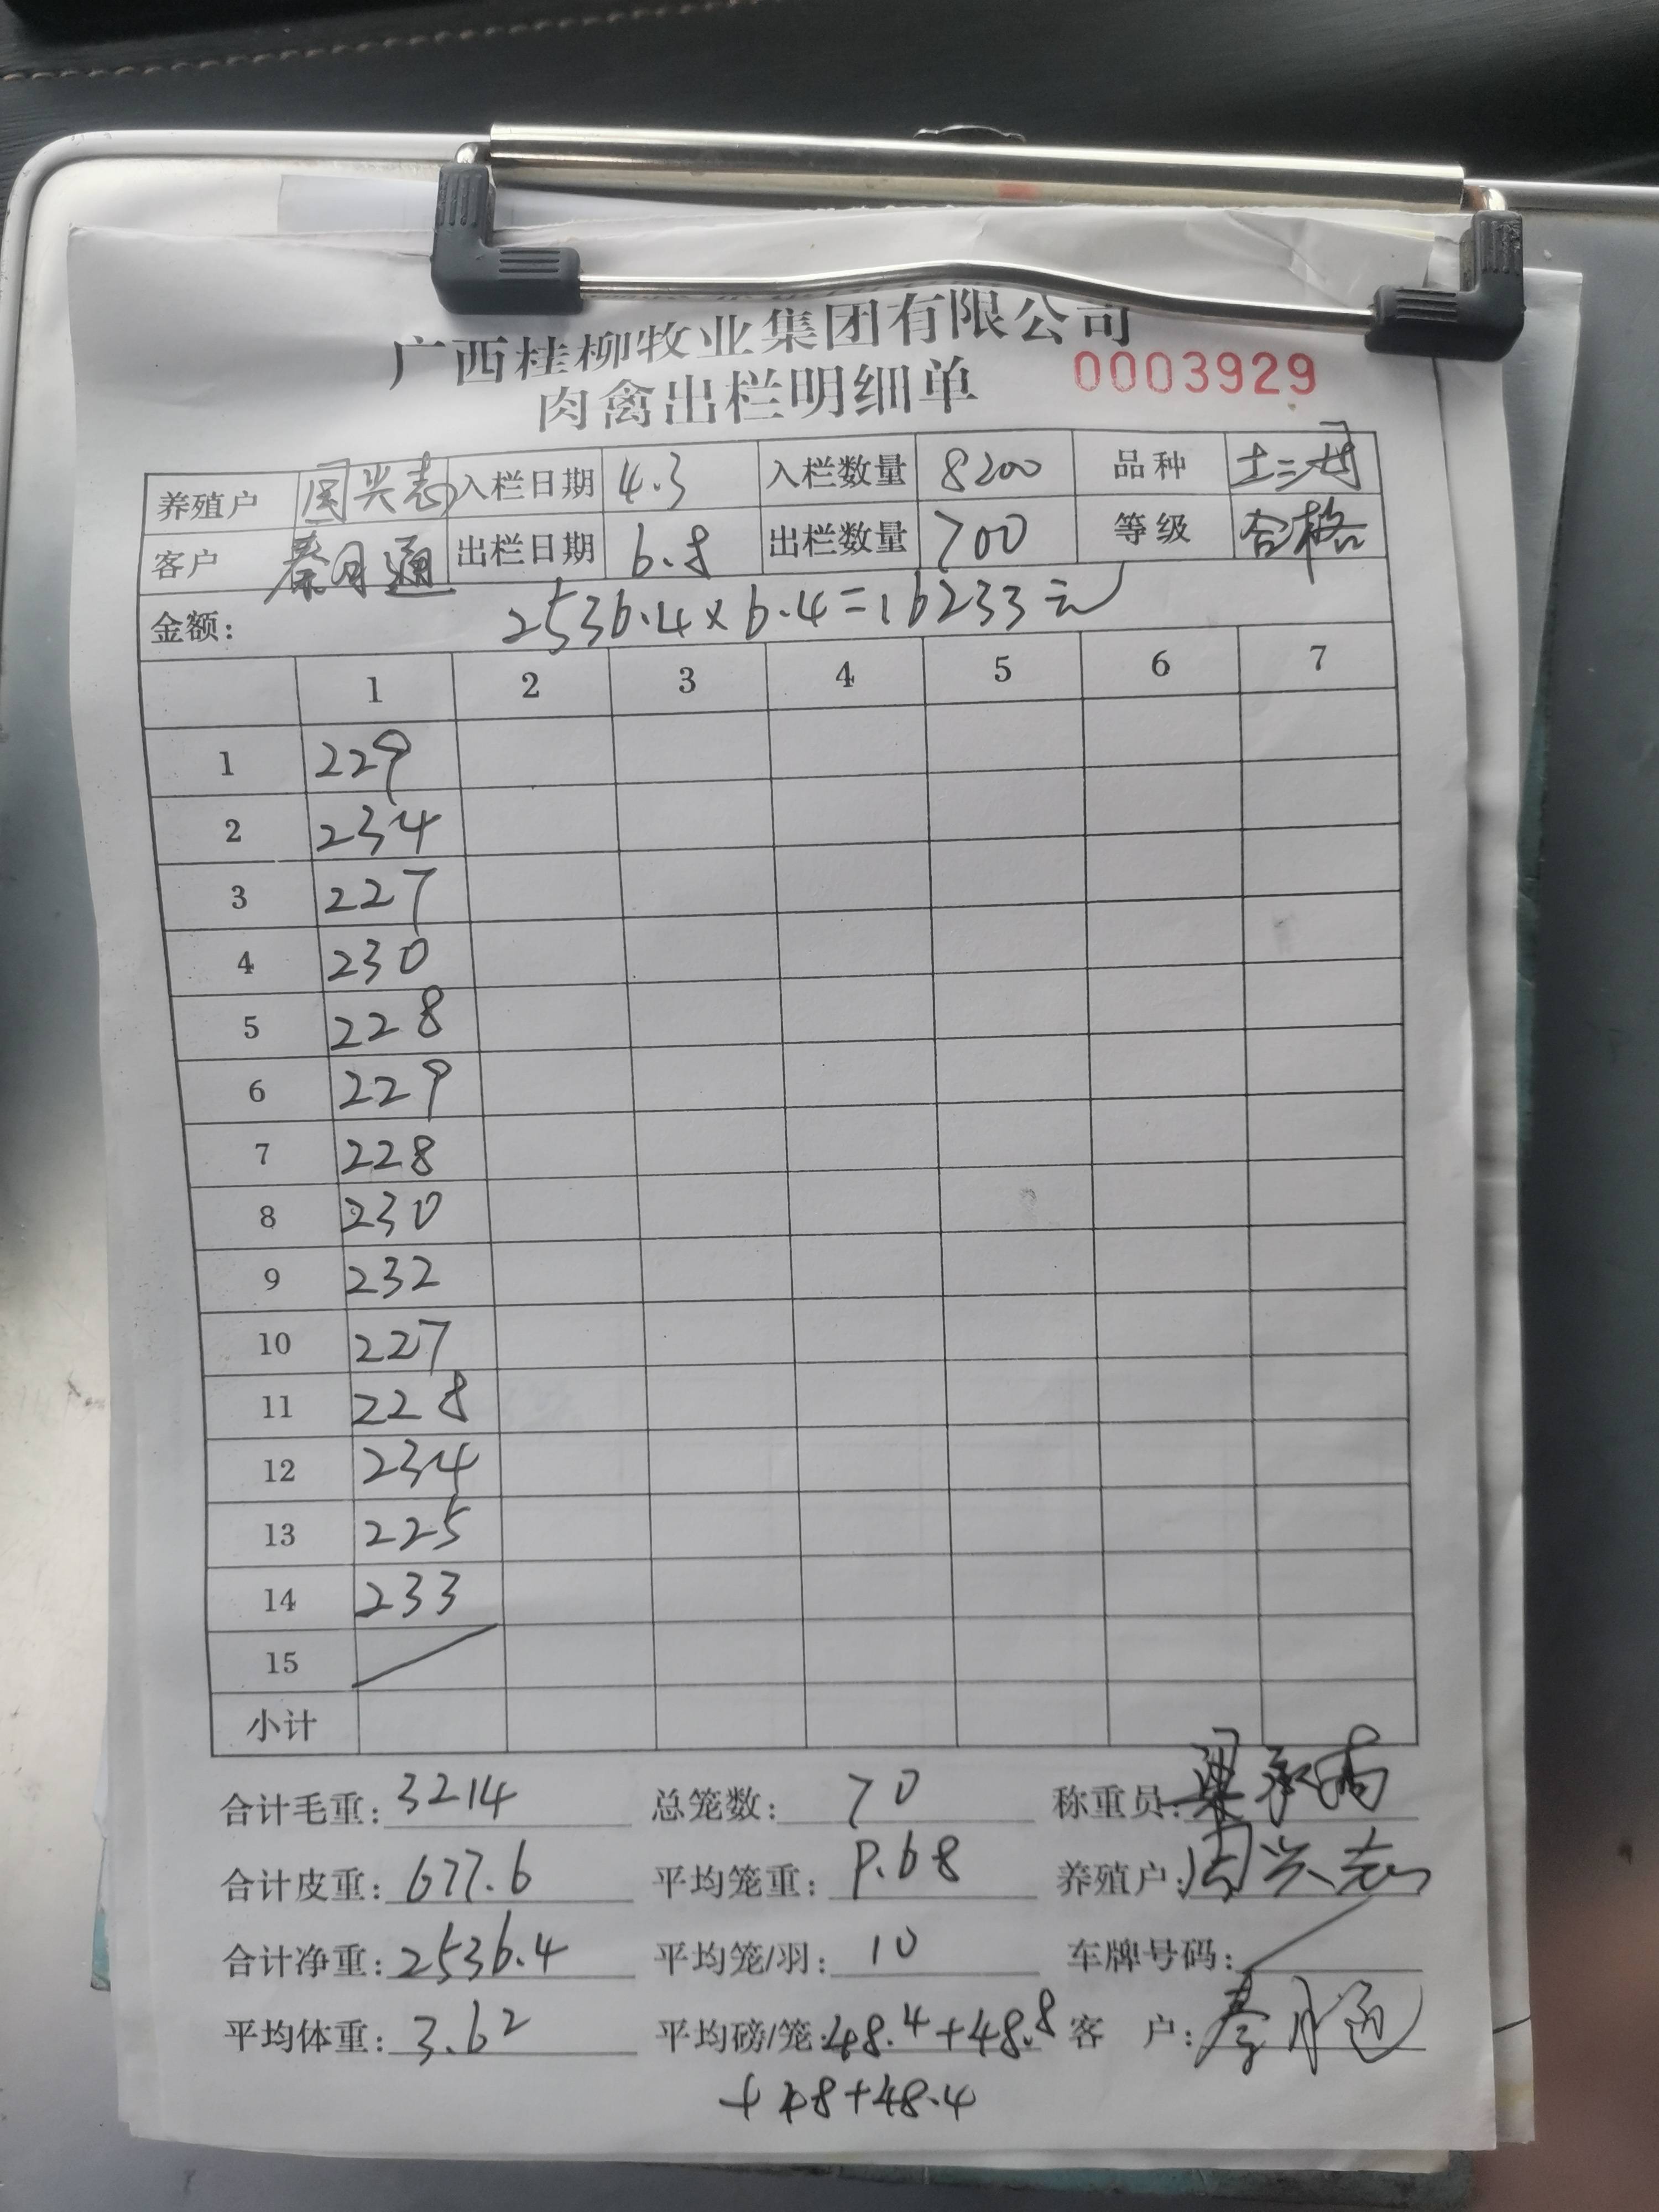 广西桂柳牧业集团有限公司
肉禽出栏明细单 0003929
养殖户 周兴志 入栏日期 4.3 入栏数量 8200 品种 土二号
客户 秦月通 出栏日期 6.8 出栏数量 700 等级 合格
金额: 2536.4×6.4=16233元
1 2 3 4 5 6 7
1 229
2 234
3 227
4 230
5 228
6 229
7 228
8 230
9 232
10 227
11 228
12 234
13 225
14 233
15
小计
合计毛重: 3214 总笼数: 70 称重员: 梁承
合计皮重: 677.6 平均笼重: 9.68 养殖户: 周兴志
合计净重: 2536.4 平均笼/羽: 10 车牌号码:
平均体重: 3.62 平均磅/笼: 48.4+48.8 客 户: 秦月通
+48+48.4